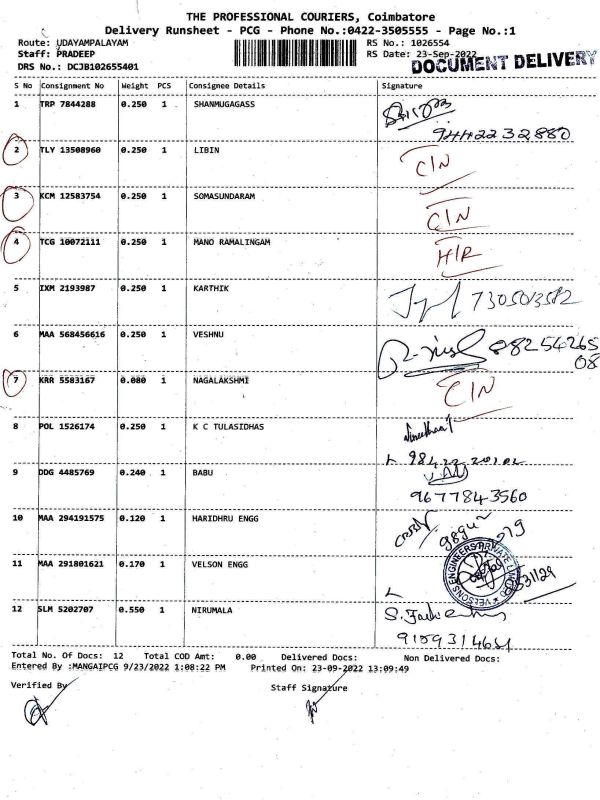 THE PROFESSIONAL COURIERS, Coimbatore
Delivery Runsheet - PCG - Phone No.:0422-3505555 - Page No.:1
Route: UDAYAMPALAYAM RS No.: 1026554
Staff: PRADEEP RS Date: 23-Sep-2022
DRS No.: DCJB102655401 DOCUMENT DELIVERY
S No Consignment No Weight PCS Consignee Details Signature
1 TRP 7844288 0.250 1 SHANMUGAGASS
9442232880
2 TLY 13508960 0.250 1 LIBIN C/N
3 KCM 12583754 0.250 1 SOMASUNDARAM C/N
4 TCG 10072111 0.250 1 MANO RAMALINGAM H/R
5 IXM 2193987 0.250 1 KARTHIK 7305013582
6 MAA 568456616 0.250 1 VESHNU 88254265
08
7 KRR 5583167 0.080 1 NAGALAKSHMI C/N
8 POL 1526174 0.250 1 K C TULASIDHAS
9 DDG 4485769 0.240 1 BABU
9677843560
10 MAA 294191575 0.120 1 HARIDHRU ENGG
11 MAA 291801621 0.170 1 VELSON ENGG
12 SLM 5202707 0.550 1 NIRUMALA
Total No. Of Docs: 12 Total COD Amt: 0.00 Delivered Docs: Non Delivered Docs:
Entered By :MANGAIPCG 9/23/2022 1:08:22 PM Printed On: 23-09-2022 13:09:49
Verified By Staff Signature